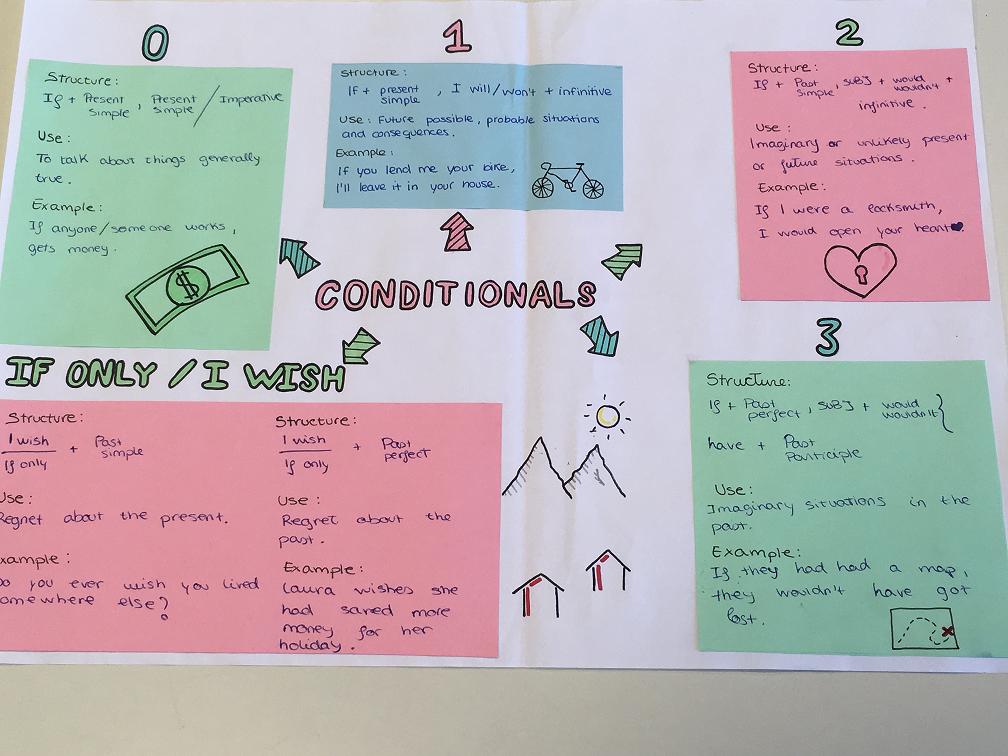 0
Structure:
If + Present simple, Present simple / Imperative
Use:
To talk about things generally
true.
Example:
If anyone/someone works,
gets money.
$
1
Structure:
If + present simple, I will/won't + infinitive
Use: Future possible, probable situations
and consequences.
Example:
If you lend me your bike,
I'll leave it in your house.
2
Structure:
If + Past simple, subj + would wouldn't +
infinitive.
Use:
Imaginary or unlikely present
or future situations.
Example:
If I were a locksmith,
I would open your heart
CONDITIONALS
3
Structure:
If + Past perfect, subj + would wouldn't
have + Past Participle
Use:
Imaginary situations in the
past.
Example:
If they had had a map,
they wouldn't have got
lost.
IF ONLY / I WISH
Structure:
I wish + Past simple
If only
Use:
Regret about the present.
Example:
Do you ever wish you lived
somewhere else?
Structure:
I wish + Past perfect
If only
Use:
Regret about the
past.
Example:
Laura wishes she
had saved more
money for her
holiday.